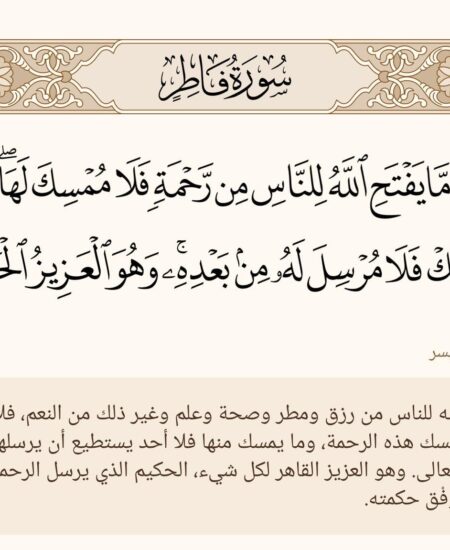 سُورَةُ فَاطِرٍ
مَّا يَفْتَحِ ٱللَّهُ لِلنَّاسِ مِن رَّحْمَةٍ فَلَا مُمْسِكَ لَهَاۖ
فَلَا مُرْسِلَ لَهُۥ مِنۢ بَعْدِهِۦۚ وَهُوَ ٱلْعَزِيزُ
للناس من رزق ومطر وصحة وعلم وغير ذلك من النعم، فلا
هذه الرحمة، وما يمسك منها فلا أحد يستطيع أن يرسلها
وهو العزيز القاهر لكل شيء، الحكيم الذي يرسل
حكمته.